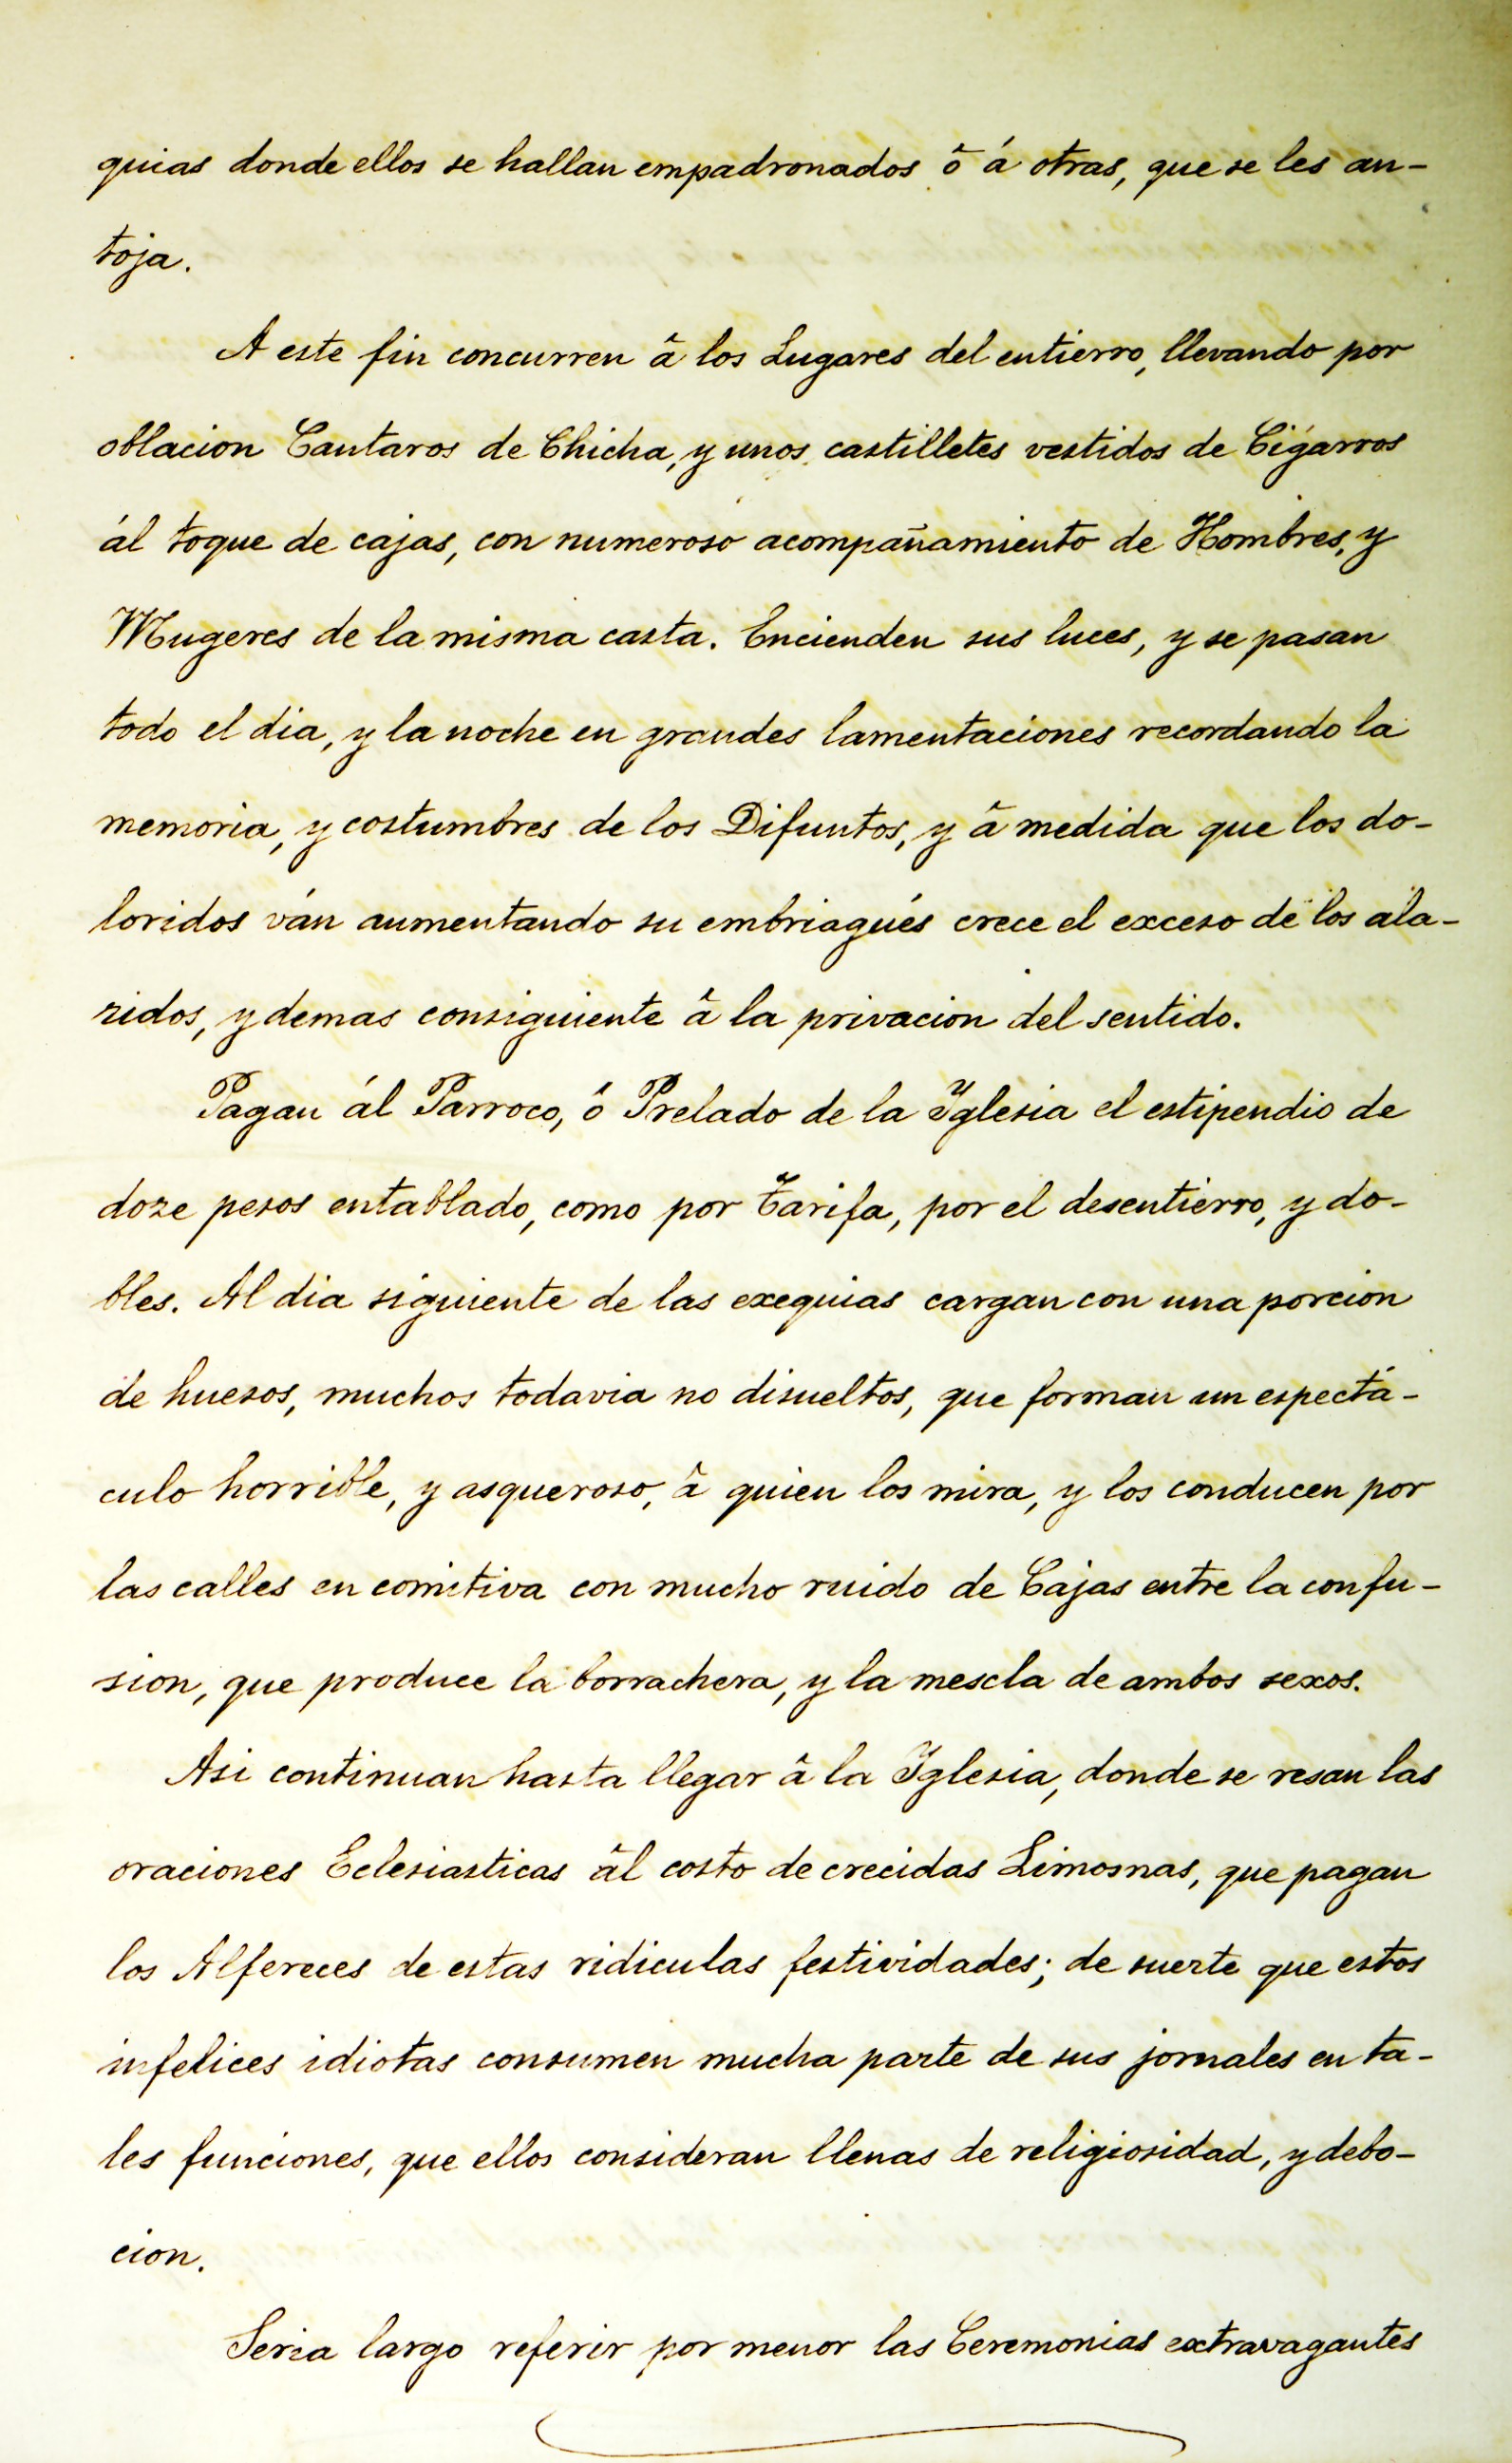 quias donde ellos se hallan empadronados ô á otras, que se les an-
toja.
A este fin concurren â los Lugares del entierro, llevando por
oblacion Cantaros de Chicha, y unos castilletes vestidos de Cigarros
ál toque de cajas, con numeroso acompañamiento de Hombres, y
Mugeres de la misma casta. Encienden sus luces, y se pasan
todo el dia, y la noche en grandes lamentaciones recordando la
memoria, y costumbres de los Difuntos, y â medida que los do-
loridos ván aumentando su embriagués crece el exceso de los ala-
ridos, y demas consiguiente â la privacion del sentido.
Pagan ál Parroco, ô Prelado de la Yglesia el estipendio de
doze pesos entablado, como por Tarifa, por el desentierro, y do-
bles. Al dia siguiente de las exequias cargan con una porcion
de huesos, muchos todavia no disueltos, que forman un espectá-
culo horrible, y asqueroso, â quien los mira, y los conducen por
las calles en comitiva con mucho ruido de Cajas entre la confu-
sion, que produce la borrachera, y la mescla de ambos sexos.
Asi continuan hasta llegar â la Yglesia, donde se resan las
oraciones Eclesiasticas âl costo de crecidas Limosnas, que pagan
los Alfereces de estas ridiculas festividades; de suerte que estos
infelices idiotas consumen mucha parte de sus jornales en ta-
les funciones, que ellos consideran llenas de religiosidad, y debo-
cion.
Seria largo referir por menor las Ceremonias extravagantes